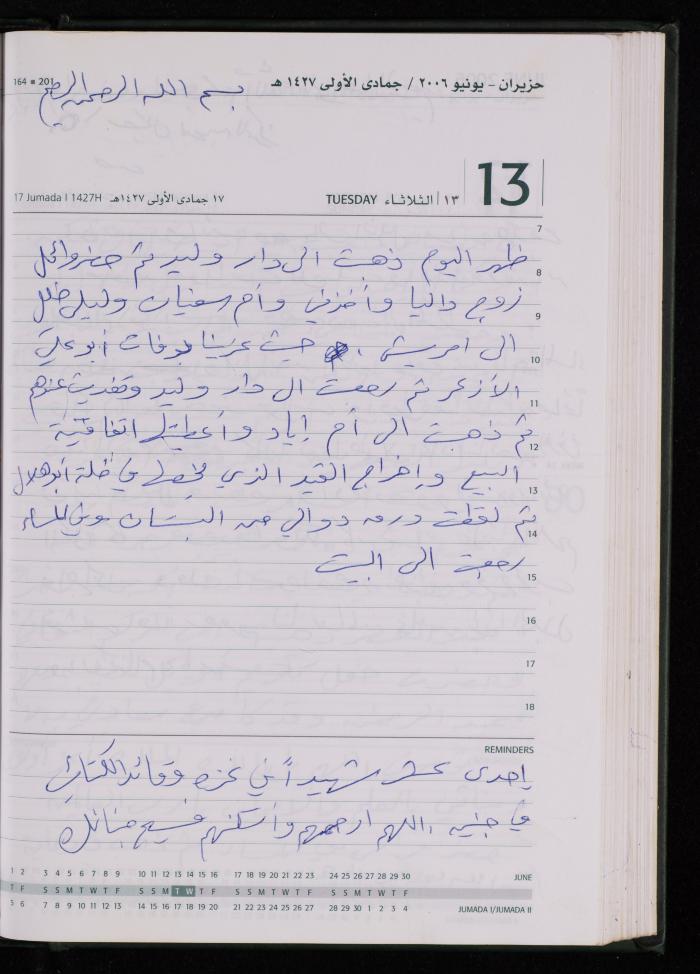 164 ■ 201
حزيران - يونيو ٢٠٠٦ / جمادى الأولى ١٤٢٧ هـ
بسم الله الرحمن الرحيم
13
17 Jumada I 1427H ١٧ جمادى الأولى ١٤٢٧هـ
TUESDAY الثلاثاء ١٣
7
ظهر اليوم ذهبت الى دار وليد ثم حضر وائل
8
زوج داليا وأخذني وأم سفيان وليلى
9
الى امريش . حيث عزينا بوفات أبو علي
10
الأزعر ثم رجعت الى دار وليد وتغديت عندهم
11
ثم ذهبت الى أم إياد وأعطيتها اتفاقية
12
البيع وإخراج القيد الذي يخصها في خلة أبو هلال
13
ثم لقطت ورق دوالي من البستان وفي المساء
14
رجعت الى البيت
15
16
17
18
REMINDERS
إحدى عشر شهيداً في غزه وقائد الكتائب
في جنين . اللهم ارحمهم وأسكنهم فسيح جنانك
1 2 3 4 5 6 7 8 9 10 11 12 13 14 15 16 17 18 19 20 21 22 23 24 25 26 27 28 29 30 JUNE
T F S S M T W T F S S M T W T F S S M T W T F S S M T W T F
5 6 7 8 9 10 11 12 13 14 15 16 17 18 19 20 21 22 23 24 25 26 27 28 29 30 1 2 3 4 JUMADA I/JUMADA II